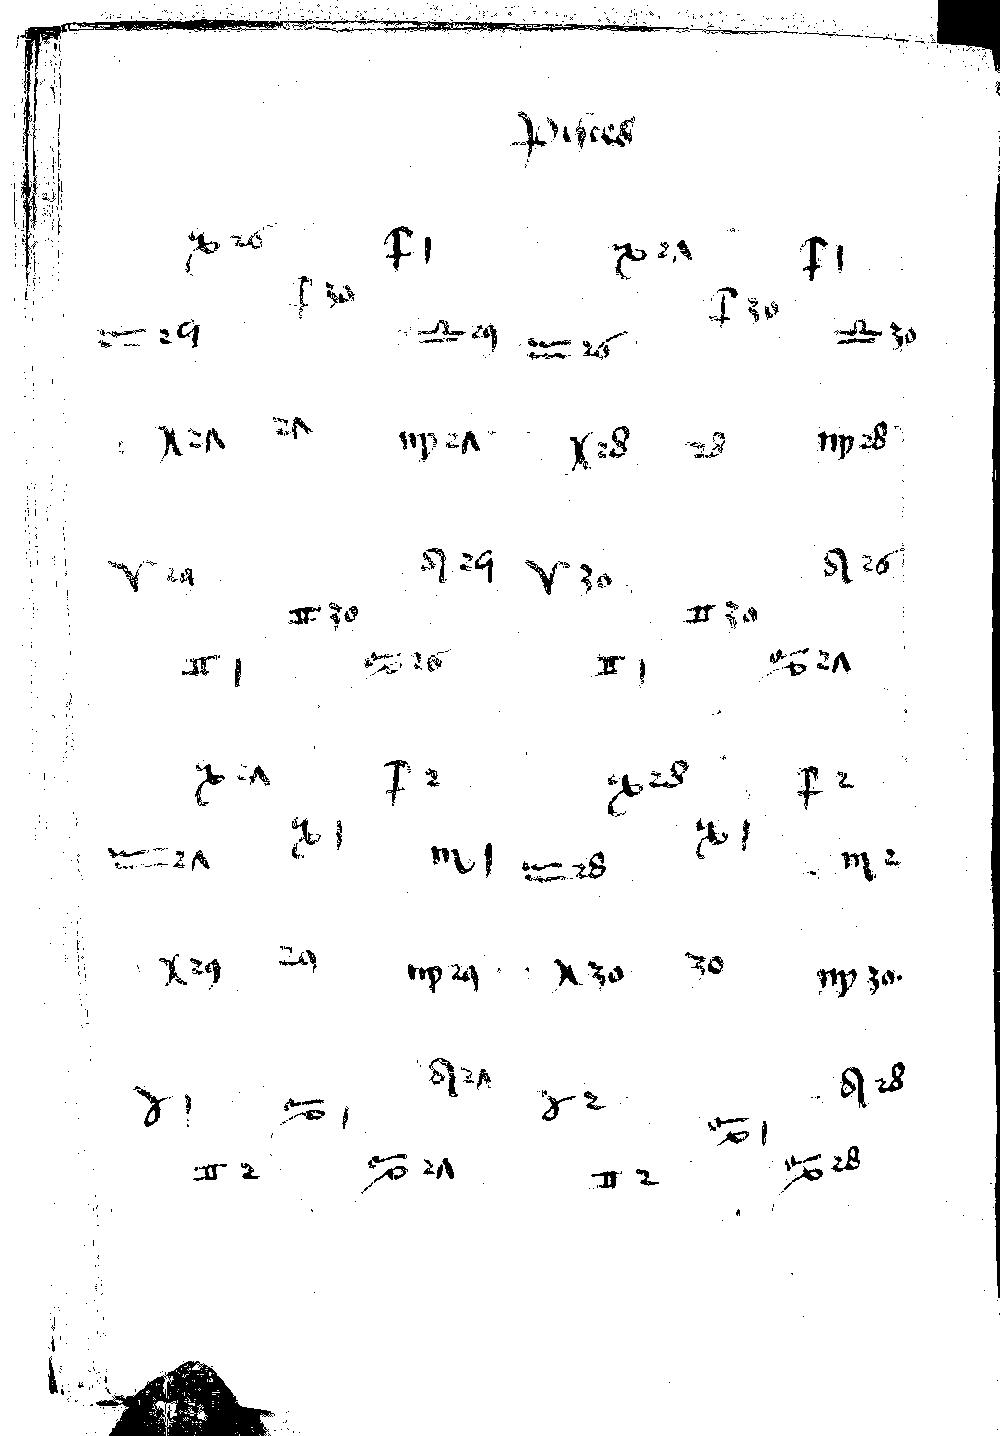 Pisces
♑ 26 ♐ 1 ♑ 27 ♐ 1
♐ 30 ♐ 30
♒ 29 ♎ 29 ♒ 26 ♎ 30
♓ 27 27 ♍ 27 ♓ 28 28 ♍ 28
♈ 29 ♌ 29 ♈ 30 ♌ 26
♊ 30 ♊ 30
♊ 1 ♋ 26 ♊ 1 ♋ 27
♑ 27 ♐ 2 ♑ 28 ♐ 2
♑ 1 ♑ 1
♒ 27 ♏ 1 ♒ 28 ♏ 2
♓ 29 29 ♍ 29 ♓ 30 30 ♍ 30
♉ 1 ♋ 1 ♌ 27 ♉ 2 ♋ 1 ♌ 28
♊ 2 ♋ 27 ♊ 2 ♋ 28